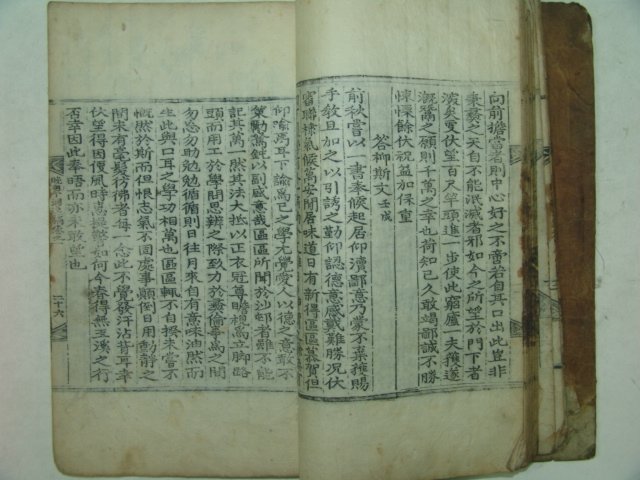 向前擔當者則中心好之不啻若自其口出此豈非
秉彝之天自不能泯滅者邪如今之所望於門下者
深矣更伏望百尺竿頭進一步使此窮廬一夫獲遂
漑鬵之願則千萬之幸也荷知已久敢竭鄙誠不勝
悚慄餘伏祝益加保重
答柳斯文 壬戌
前秋嘗以一書奉候起居仰瀆鄙意乃蒙不棄擁賜
手敎且加之以引誘之勤仰認德意感戴難勝況伏
審聯棣氣候萬安閒居味道日有新得區區慕賀但
仰瀹焉耳下諭爲己之學尤覺愛人以德之意敢不
策勵駑鈍以副盛意哉區區所聞於汕邨者雖不能
記其萬一然其大抵以正衣冠尊瞻視爲立脚路
頭而用工於學問思辨之際致力於彛倫事爲之間
勿忘勿助勉勉循循則日往月來自有意味油然而
生此與口耳之學功相萬也區區輒不自揆來嘗不
慨然於斯而但恨志氣不固處事顚倒日用動靜之
間未有毫髮彷彿者每一念此不覺發汗沾背耳幸
伏望得因便風時萬提警如何今春得無玉溪之行
否幸因此奉晤而亦未敢望也
二十六